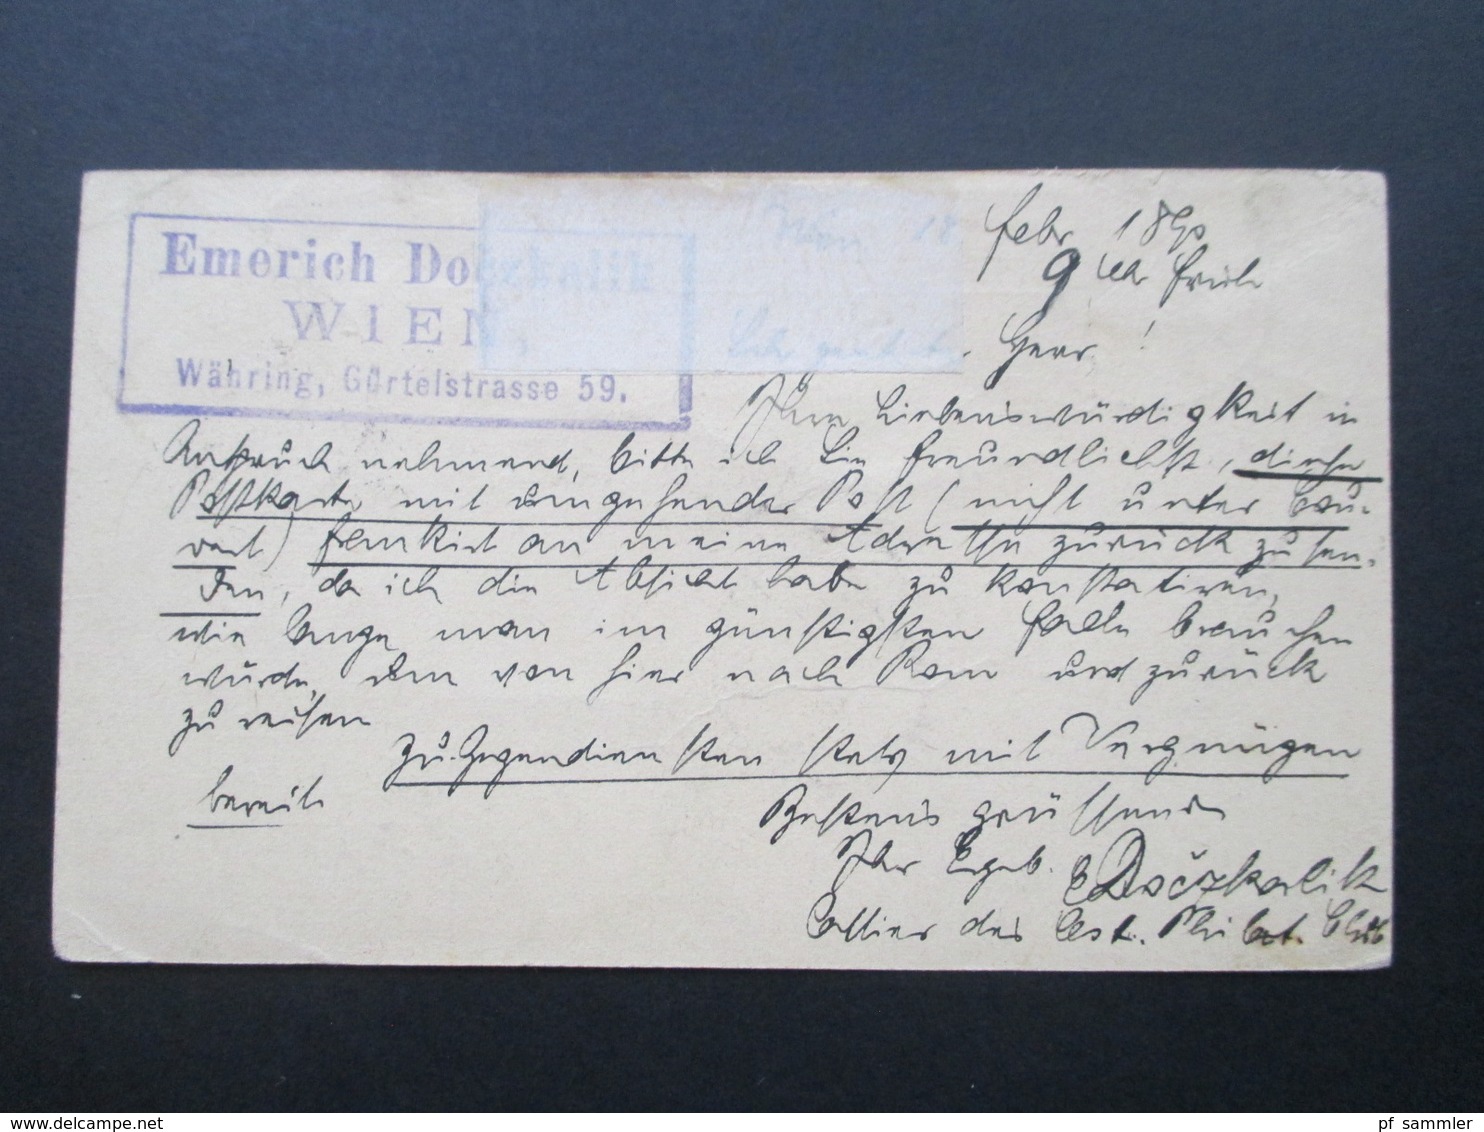 Emerich Doczkalik
WIEN,
Währing, Gürtelstrasse 59.
Wien 18
febr 1890
9 Uhr früh
geehrter Herr!
Ihre Liebenswürdigkeit in
Anspruch nehmend, bitte ich Sie freundlichst, diese
Postkarte mit umgehender Post (nicht unter Cou-
vert) frankirt an meine Adresse zurück zu sen-
den, da ich die Absicht habe zu konstatiren,
wie lange man im günstigsten Falle brauchen
würde, um von hier nach Rom und zurück
zu reisen
Zu Gegendiensten stets mit Vergnügen
bereit
Bestens grüssend
Ihr Ergeb. E Dočzkalik
Cassier des Öst. Philat. Club
pf sammler